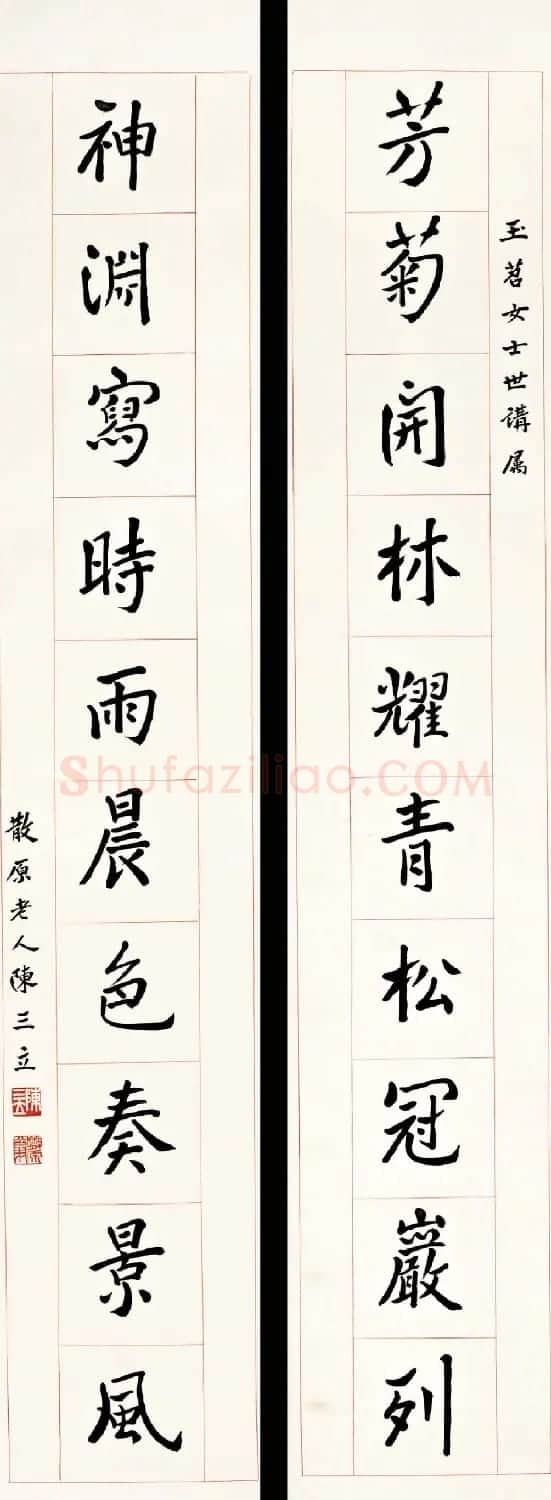 玉茗女士世講属
芳菊開林耀青松冠巖列
神淵寫時雨晨色奏景風
散原老人陳三立
Shufaziliao.COM